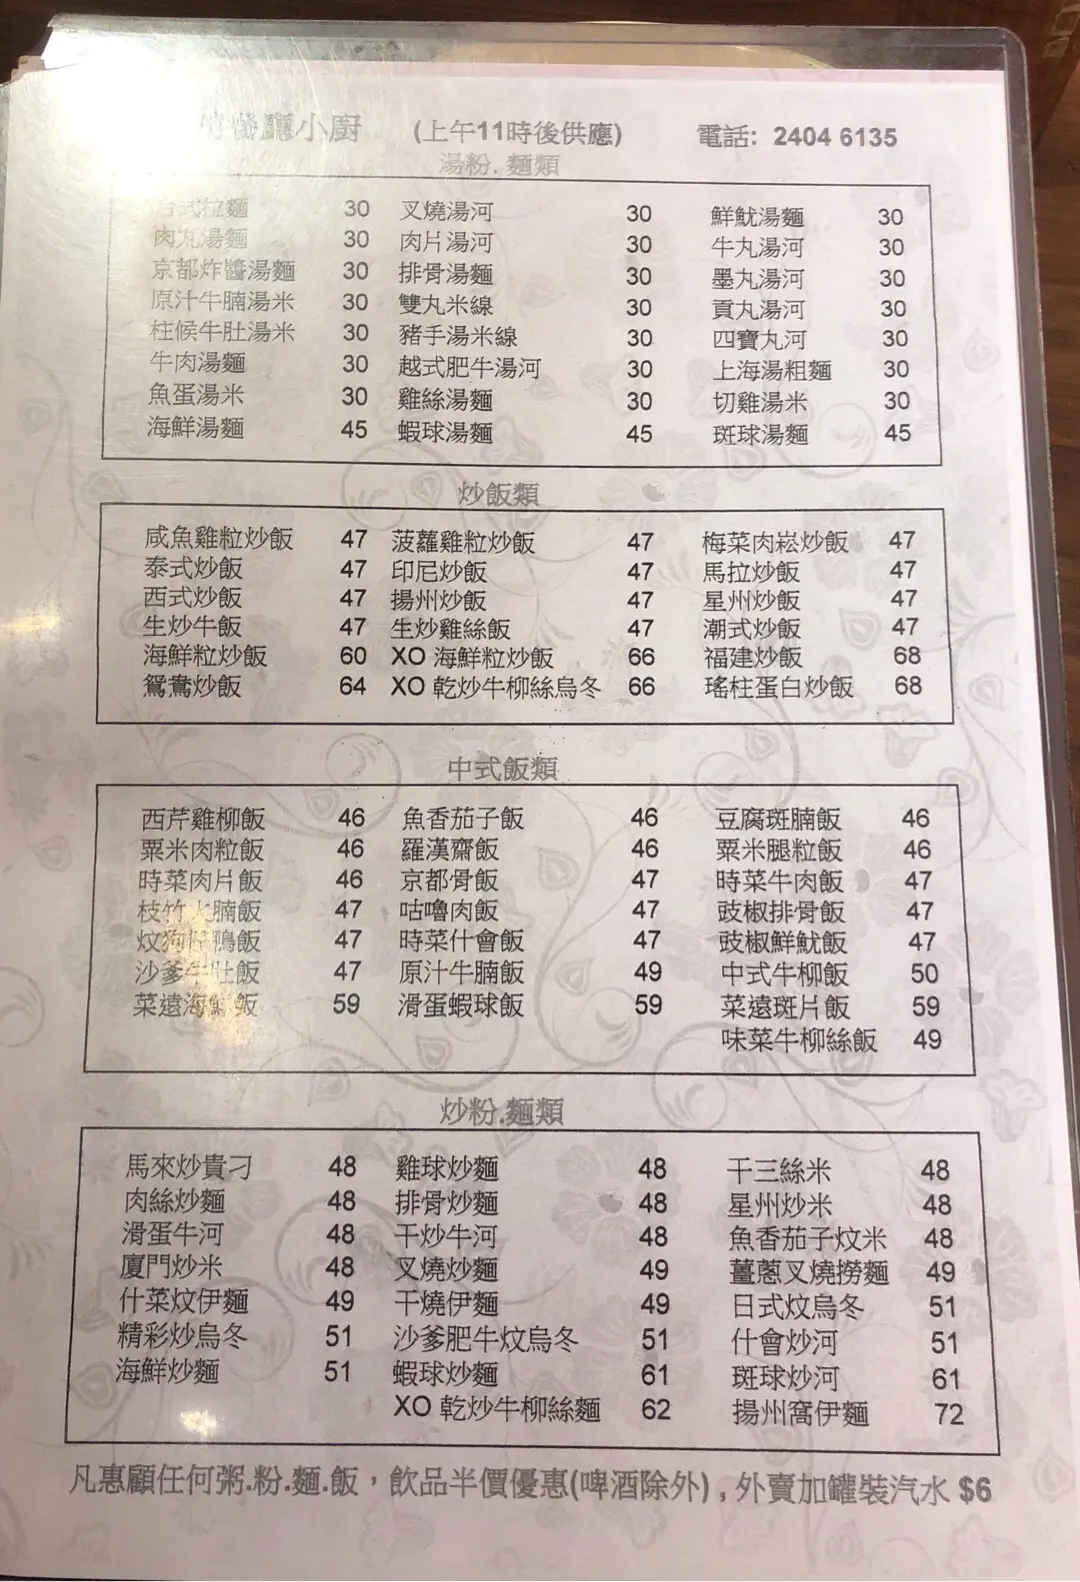 小廚 (上午11時後供應) 電話: 2404 6135
湯粉.麵類
台式拉麵 30 叉燒湯河 30 鮮魷湯麵 30
肉丸湯麵 30 肉片湯河 30 牛丸湯河 30
京都炸醬湯麵 30 排骨湯麵 30 墨丸湯河 30
原汁牛腩湯米 30 雙丸米線 30 貢丸湯河 30
柱候牛肚湯米 30 豬手湯米線 30 四寶丸河 30
牛肉湯麵 30 越式肥牛湯河 30 上海湯粗麵 30
魚蛋湯米 30 雞絲湯麵 30 切雞湯米 30
海鮮湯麵 45 蝦球湯麵 45 斑球湯麵 45
炒飯類
咸魚雞粒炒飯 47 菠蘿雞粒炒飯 47 梅菜肉崧炒飯 47
泰式炒飯 47 印尼炒飯 47 馬拉炒飯 47
西式炒飯 47 揚州炒飯 47 星州炒飯 47
生炒牛飯 47 生炒雞絲飯 47 潮式炒飯 47
海鮮粒炒飯 60 XO 海鮮粒炒飯 66 福建炒飯 68
鴛鴦炒飯 64 XO 乾炒牛柳絲烏冬 66 瑤柱蛋白炒飯 68
中式飯類
西芹雞柳飯 46 魚香茄子飯 46 豆腐斑腩飯 46
粟米肉粒飯 46 羅漢齋飯 46 粟米腿粒飯 46
時菜肉片飯 46 京都骨飯 47 時菜牛肉飯 47
枝竹火腩飯 47 咕嚕肉飯 47 豉椒排骨飯 47
炆狗仔鴨飯 47 時菜什會飯 47 豉椒鮮魷飯 47
沙爹牛肚飯 47 原汁牛腩飯 49 中式牛柳飯 50
菜遠海鮮飯 59 滑蛋蝦球飯 59 菜遠斑片飯 59
味菜牛柳絲飯 49
炒粉.麵類
馬來炒貴刁 48 雞球炒麵 48 干三絲米 48
肉絲炒麵 48 排骨炒麵 48 星州炒米 48
滑蛋牛河 48 干炒牛河 48 魚香茄子炆米 48
廈門炒米 48 叉燒炒麵 49 薑蔥叉燒撈麵 49
什菜炆伊麵 49 干燒伊麵 49 日式炆烏冬 51
精彩炒烏冬 51 沙爹肥牛炆烏冬 51 什會炒河 51
海鮮炒麵 51 蝦球炒麵 61 斑球炒河 61
XO 乾炒牛柳絲麵 62 揚州窩伊麵 72
凡惠顧任何粥.粉.麵.飯，飲品半價優惠(啤酒除外) , 外賣加罐裝汽水 $6